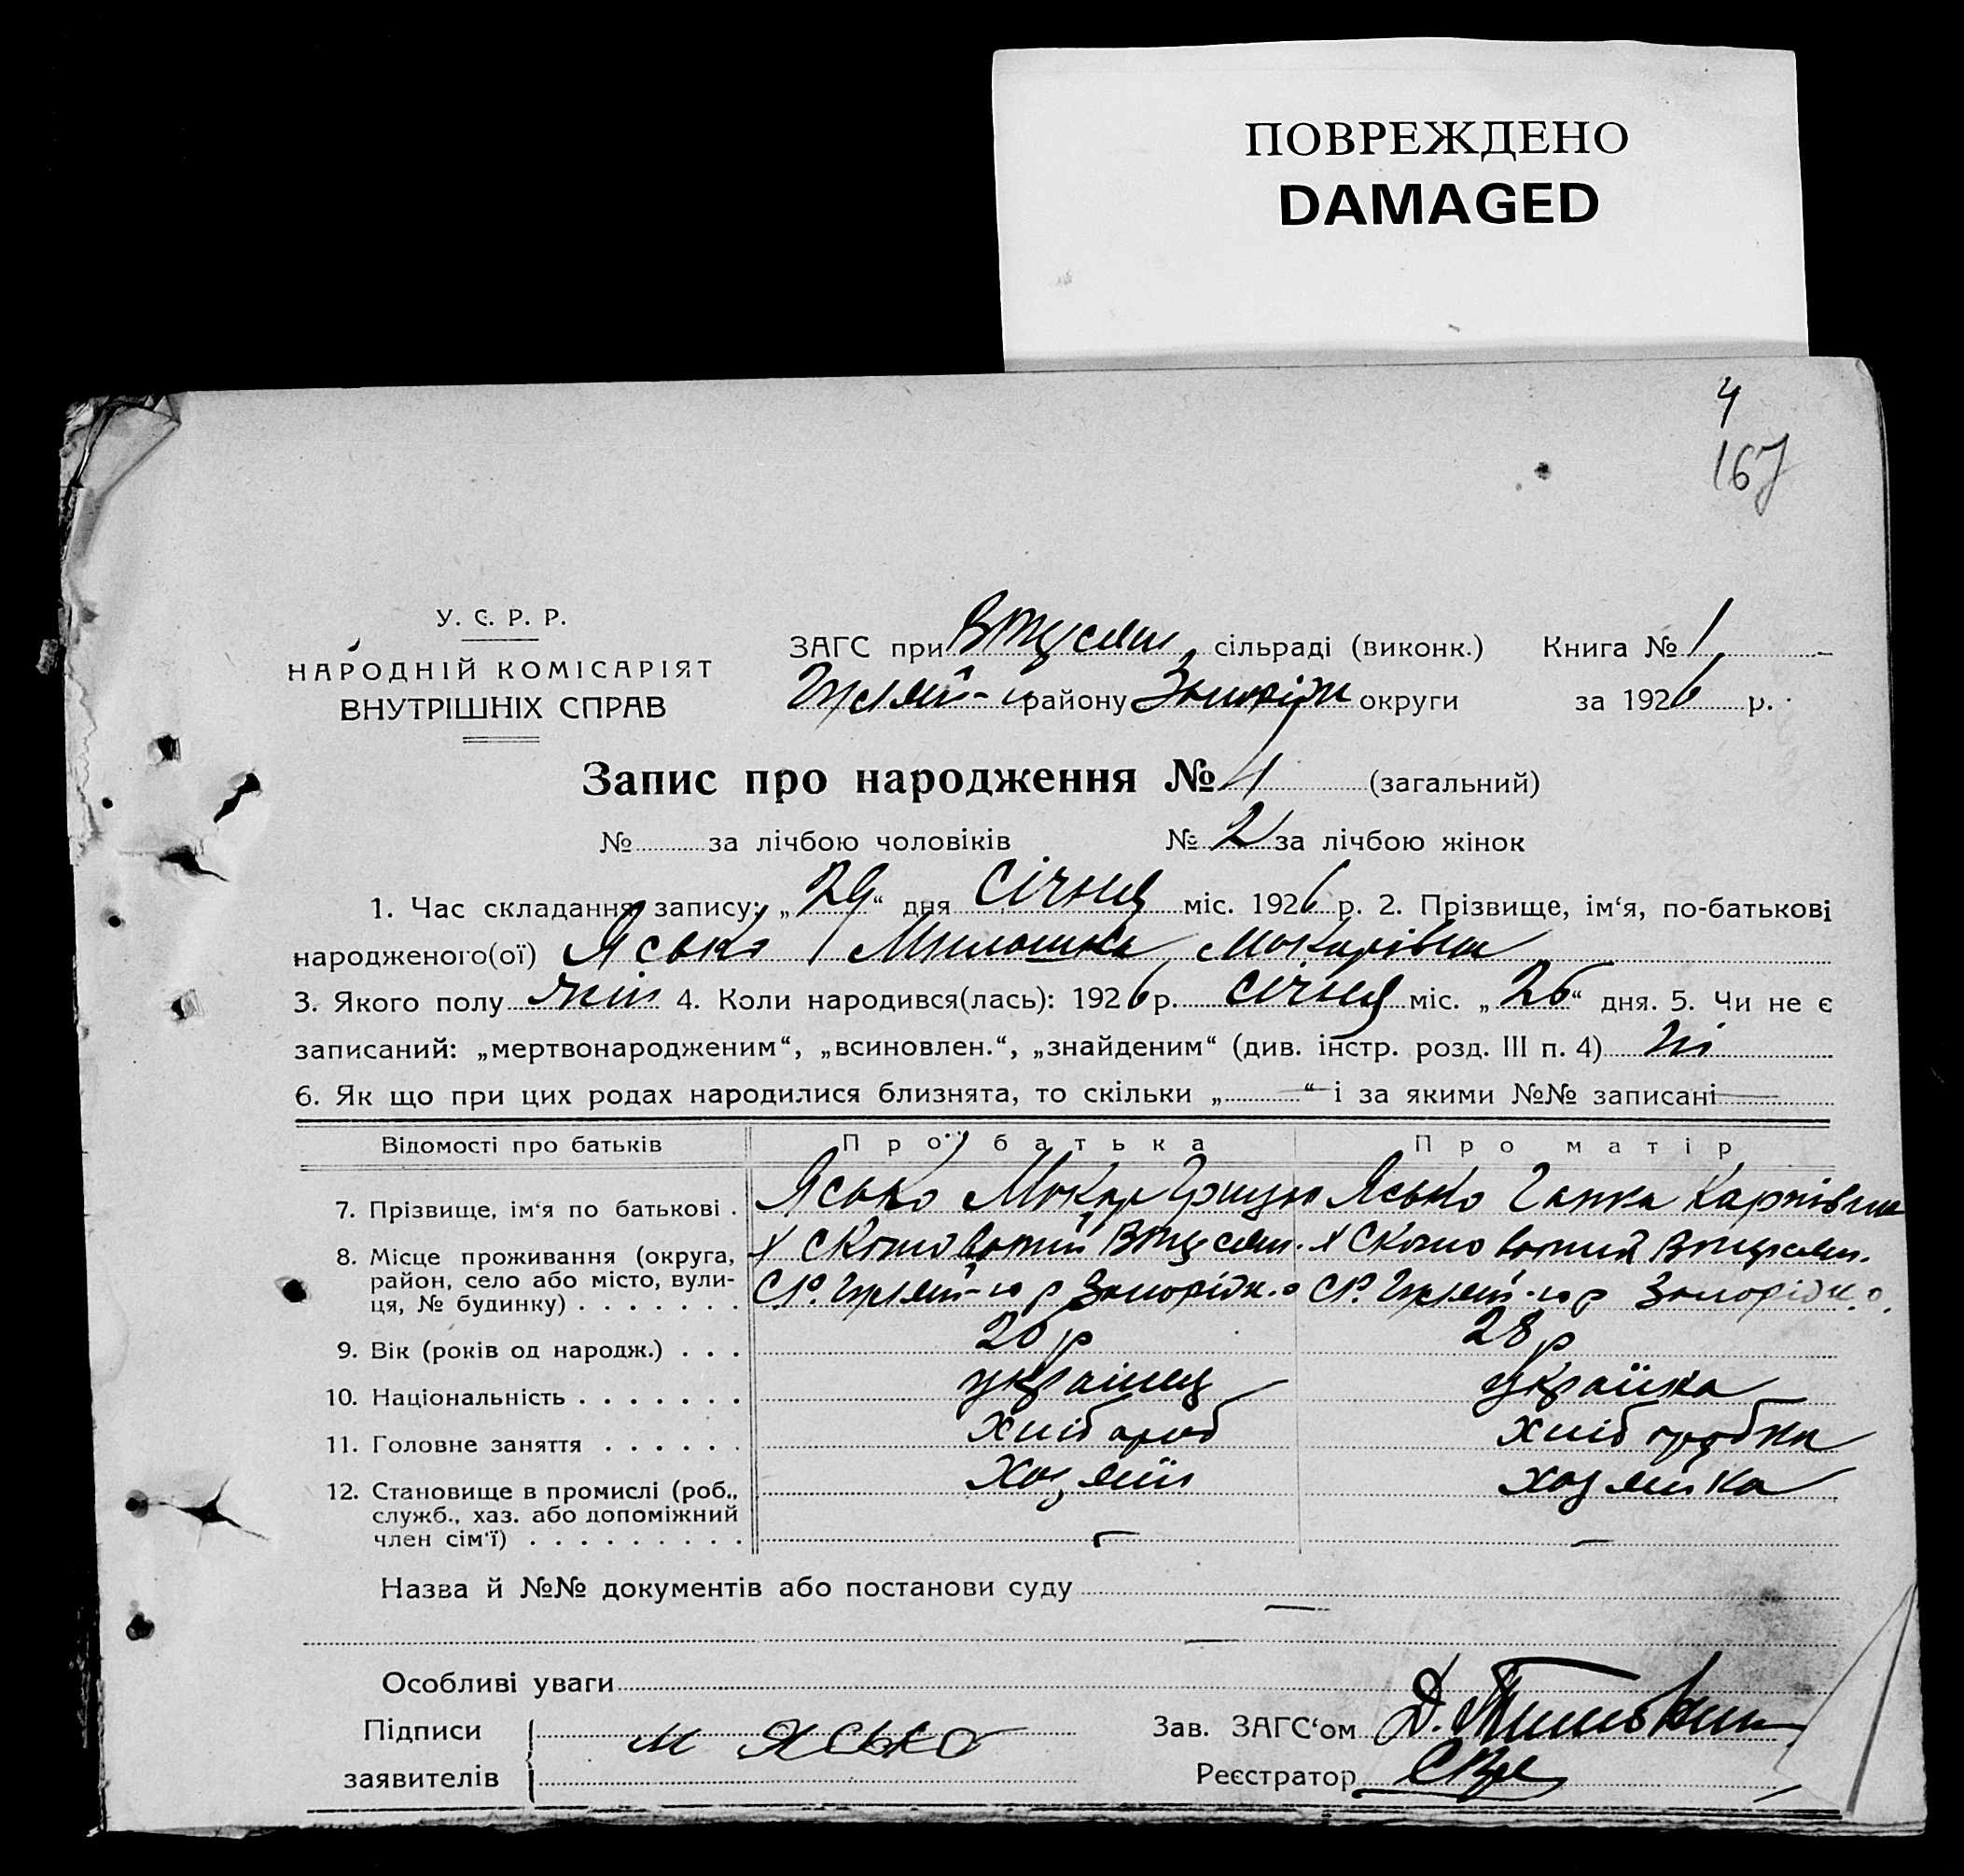 ПОВРЕЖДЕНО
DAMAGED
4
167
У. С. Р. Р.
НАРОДНІЙ КОМІСАРІЯТ
ВНУТРІШНІХ СПРАВ
ЗАГС при сільраді (виконк.) Книга № 1
району Запоріж округи за 1926 р.
Запис про народження № 4 (загальний)
№ за лічбою чоловіків № 2 за лічбою жінок
1. Час складання запису: „29“ дня Січня міс. 1926 р. 2. Прізвище, ім‘я, по-батькові
народженого(ої) Ясько Макарівна
3. Якого полу жін 4. Коли народився(лась): 1926 р. Січня міс. „26“ дня. 5. Чи не є
записаний: „мертвонародженим“, „всиновлен.“, „знайденим“ (див. інстр. розд. III п. 4) ні
6. Як що при цих родах народилися близнята, то скільки „—“ і за якими №№ записані —
Відомості про батьків Про батька Про матір
7. Прізвище, ім‘я по батькові . Ясько Макар Грицьк Ясько Гапка Карпівна
8. Місце проживання (округа, х Скотоватий х Скотоватий
район, село або місто, вули- СР. Гуляй-го р Запоріж. о СР. Гуляй-го р Запоріж. о.
ця, № будинку) . . . . . . .
9. Вік (років од народж.) . . . 26 р 28 р
10. Національність . . . . . . . українец українка
11. Головне заняття . . . . . . хлібороб хліборобка
12. Становище в промислі (роб., хозяїн хозяйка
служб., хаз. або допоміжний
член сім‘ї) . . . . . . . . . — —
Назва й №№ документів або постанови суду —
—
Особливі уваги
Підписи М Ясько Зав. ЗАГС‘ом
заявителів Реєстратор